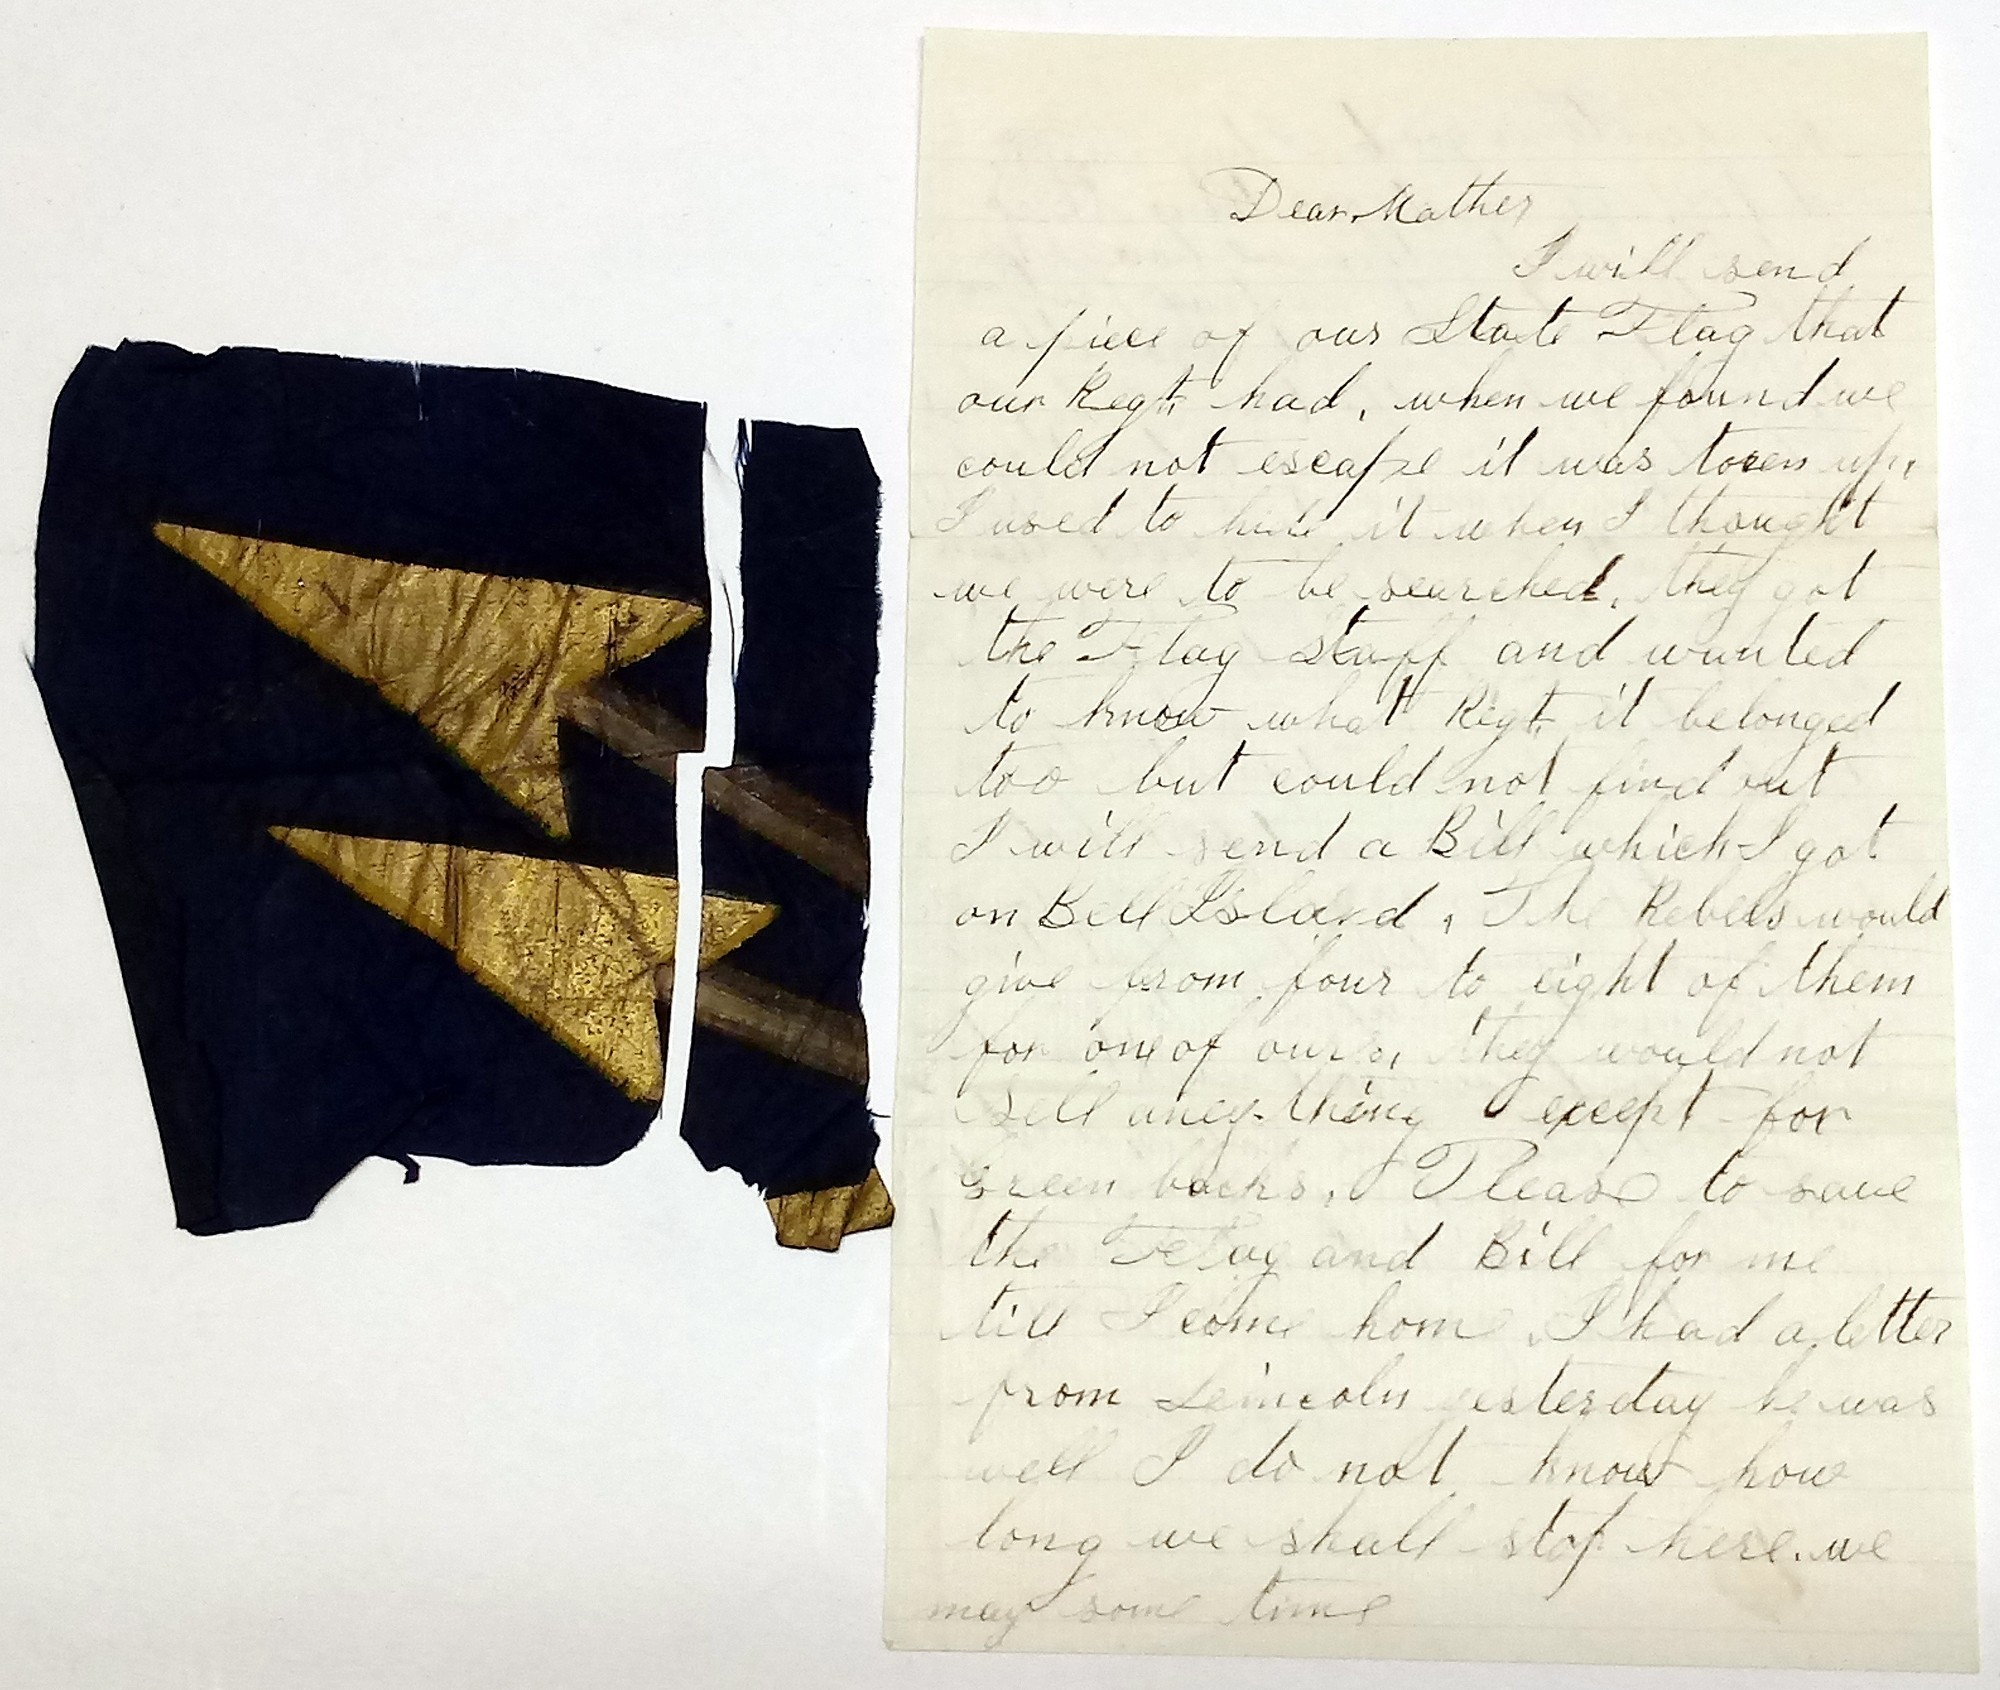 Dear Mother
I will send
a piece of our State Flag that
our Regt, had, when we found we
could not escape it was toren up,
I used to hide it when I thought
we were to be searched, they got
the Flag Staff and wanted
to know what Regt, it belonged
too but could not find out
I will send a Bill which I got
on Bell Island, The Rebels would
give from four to eight of them
for one of ours, they would not
sell aney-thing except for
Green backs, Please to save
the Flag and Bill for me
till I come home, I had a letter
from Leincoln yesterday he was
well I do not know how
long we shall stop here. we
may some time